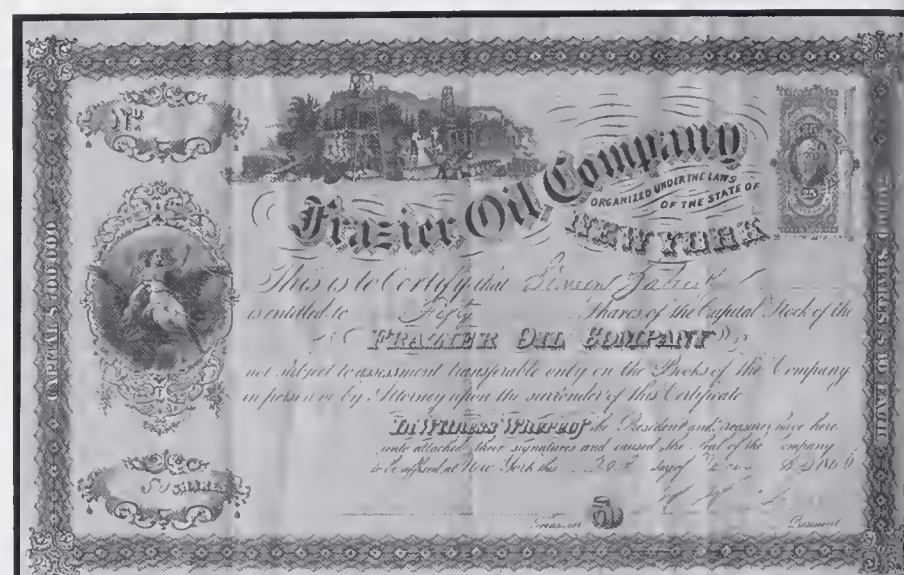 No
Frazier Oil Company
ORGANIZED UNDER THE LAWS
OF THE STATE OF
NEW YORK
25
25
CAPITAL $700,000
SHARES $5 EACH
This is to Certify that
is entitled to Fifty Shares of the Capital Stock of the
FRAZIER OIL COMPANY
not subject to assessment transferable only on the Books of the Company
in person or by Attorney upon the surrender of this Certificate
In Witness Whereof the President and Treasurer have here
unto attached their signatures and caused the Seal of the Company
to be affixed at New York this 20th day of
50 SHARES
Treasurer
President